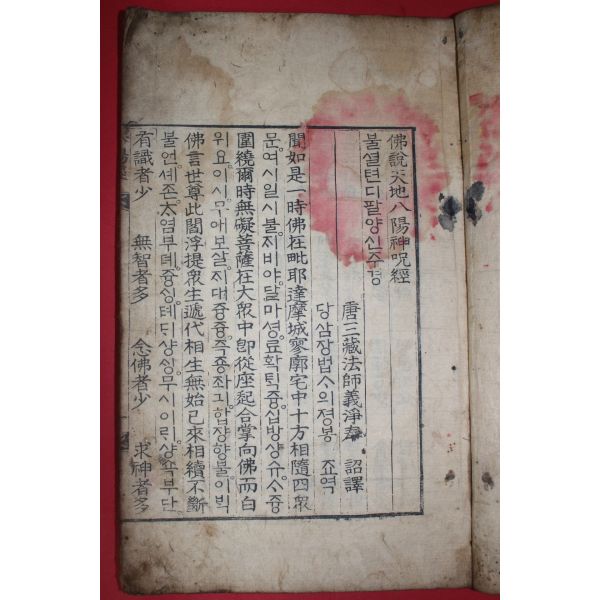 佛說天地八陽神呪經
불셜텬디팔양신주경
唐三藏法師義淨奉 詔譯
당삼장법ᄉᆞ의졍봉 죠역
聞如是一時佛在毗耶達摩城寥廓宅中十方相隨四衆
문여시일시불ᄌᆡ비야달마셩료확ᄐᆡᆨ즁십방샹슈ᄉᆞ즁
圍繞爾時無礙菩薩在大衆中即從座起合掌向佛而白
위요이시무애보살ᄌᆡ대즁즁즉죵좌긔합쟝향불이ᄇᆡᆨ
佛言世尊此閻浮提衆生遞代相生無始已來相續不斷
불언셰존ᄎᆞ염부뎨즁ᄉᆡᆼ톄ᄃᆡ샹ᄉᆡᆼ무시이ᄅᆡ샹쇽부단
有識者少 無智者多 念佛者少 求神者多